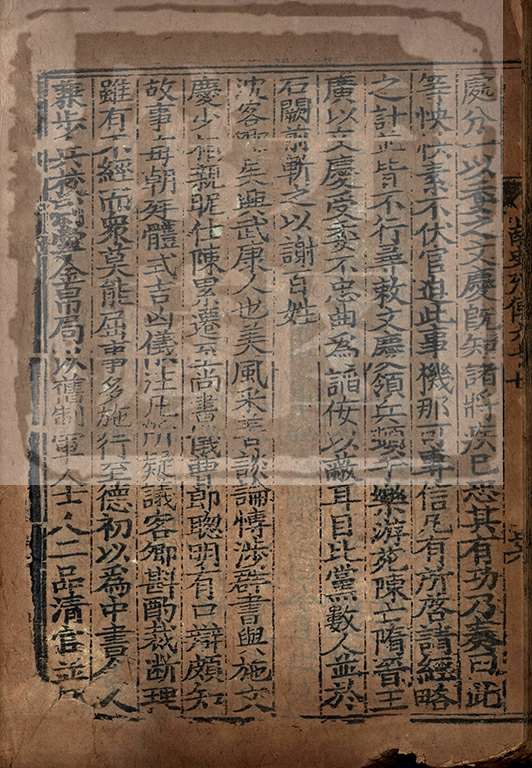 處分一以委之文慶既知諸將疾已恐其有功乃奏曰此
等怏怏素不伏官迫此事機那可專信凡有所啓請經略
之計並皆不行尋敕文慶領兵頓于樂游苑陳亡隋晉王
廣以文慶受委不忠曲為諂佞以蔽耳目比黨數人並於
石闕前斬之以謝百姓
沈客卿吳興武康人也美風采善談論博涉群書與施文
慶少相親昵仕陳累遷至尚書儀曹郎聰明有口辯頗知
故事每朝廷體式吉凶儀注凡所疑議客卿斟酌裁断理
雖有不經而衆莫能屈事多施行至德初以為中書舍人
兼步兵校尉掌金帛局以舊制軍人士人二品清官並